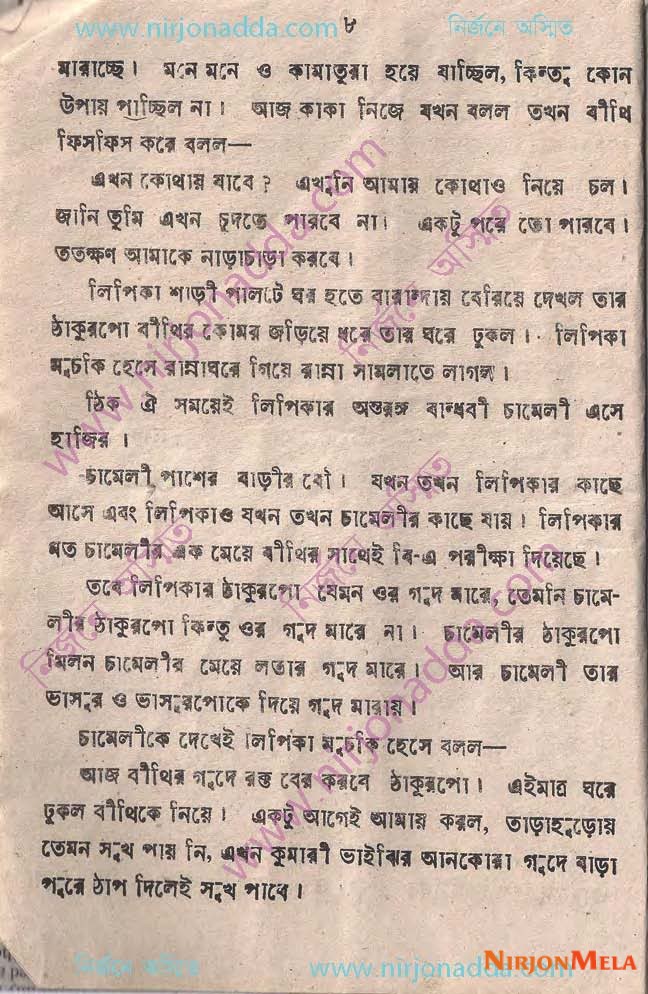 www.nirjonadda.com ৮ নির্জনে অস্মিত
মারাচ্ছে। মনে মনে ও কামাতুরা হয়ে যাচ্ছিল, কিন্তু কোন
উপায় পাচ্ছিল না। আজ কাকা নিজে যখন বলল তখন বীথি
ফিসফিস করে বলল—
এখন কোথায় যাবে? এখুনি আমায় কোথাও নিয়ে চল।
জানি তুমি এখন চুদতে পারবে না। একটু পরে তো পারবে।
ততক্ষণ আমাকে নাড়াচাড়া করবে।
লিপিকা শাড়ী পালটে ঘর হতে বারান্দায় বেরিয়ে দেখল তার
ঠাকুরপো বীথির কোমর জড়িয়ে ধরে তার ঘরে ঢুকল। লিপিকা
মুচকি হেসে রান্নাঘরে গিয়ে রান্না সামলাতে লাগল।
ঠিক ঐ সময়েই লিপিকার অন্তরঙ্গ বান্ধবী চামেলী এসে
হাজির।
চামেলী পাশের বাড়ীর বৌ। যখন তখন লিপিকার কাছে
আসে এবং লিপিকাও যখন তখন চামেলীর কাছে যায়। লিপিকার
মত চামেলীর এক মেয়ে বীথির সাথেই বি-এ পরীক্ষা দিয়েছে।
তবে লিপিকার ঠাকুরপো যেমন ওর গুদ মারে, তেমনি চামে-
লীর ঠাকুরপো কিন্তু ওর গুদ মারে না। চামেলীর ঠাকুরপো
মিলন চামেলীর মেয়ে লতার গুদ মারে। আর চামেলী তার
ভাসুর ও ভাসুরপোকে দিয়ে গুদ মারায়।
চামেলীকে দেখেই লিপিকা মুচকি হেসে বলল—
আজ বীথির গুদে রক্ত বের করবে ঠাকুরপো। এইমাত্র ঘরে
ঢুকল বীথিকে নিয়ে। একটু আগেই আমায় করল, তাড়াহুড়োয়
তেমন সুখ পায় নি, এখন কুমারী ভাইঝির আনকোরা গুদে বাড়া
পুরে ঠাপ দিলেই সুখ পাবে।
নির্জনে অস্মিত www.nirjonadda.com NIRJONMELA